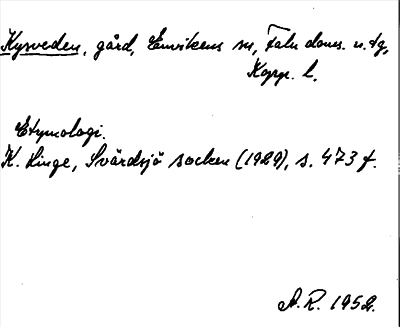 Kysveden, gård, Envikens sn, Falu doms. u. tg,
Kopp. l.
Etymologi.
K. Linge, Svärdsjö socken (1929), s. 473 f.
A.R. 1952.